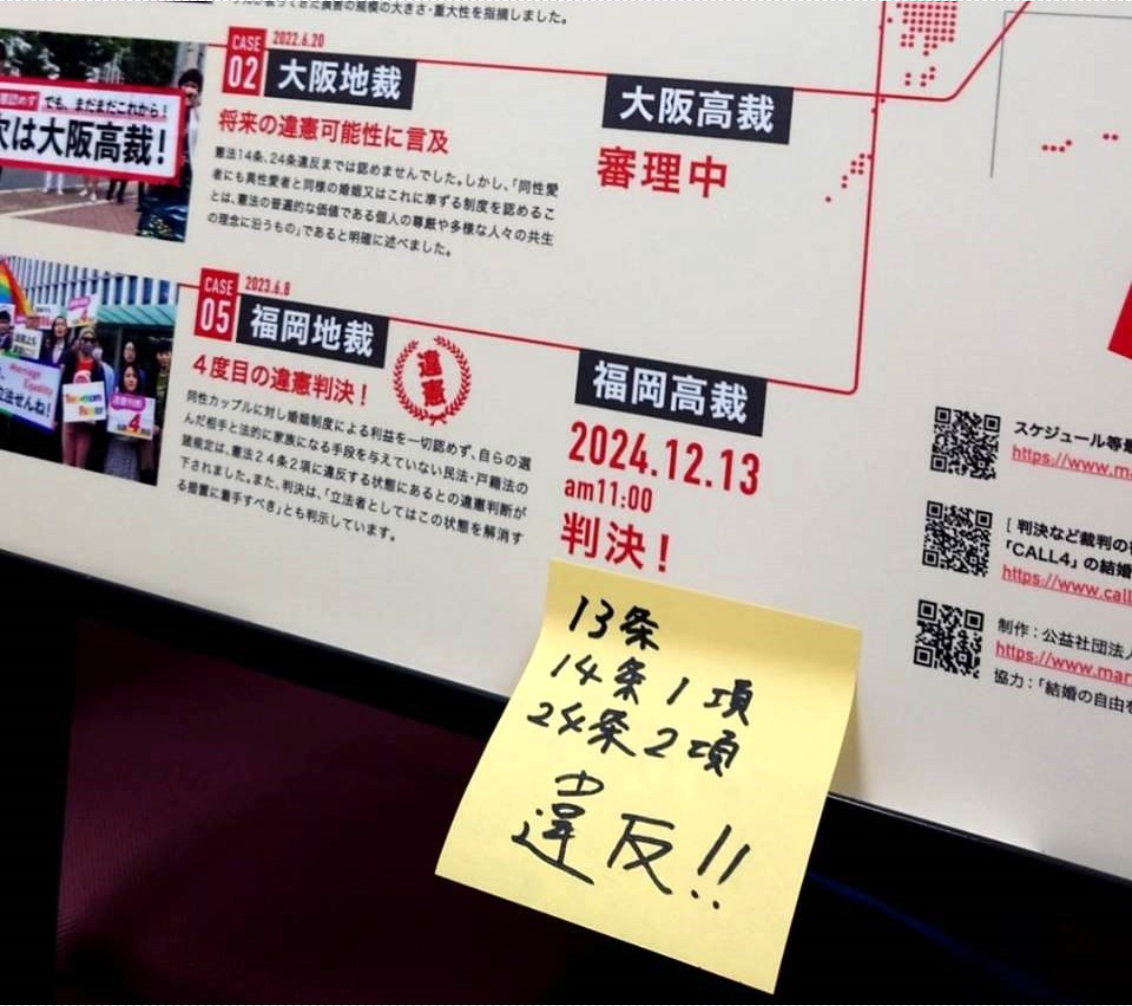 大きさ・重大性を指摘しました。
CASE
02
2022.6.20
大阪地裁
将来の違憲可能性に言及
憲法14条、24条違反までは認めませんでした。しかし、「同性愛
者にも異性愛者と同様の婚姻又はこれに準ずる制度を認めるこ
とは、憲法の普遍的な価値である個人の尊厳や多様な人々の共生
の理念に沿うもの」であると明確に述べました。
大阪高裁
審理中
でも、まだまだこれから!
次は大阪高裁!
CASE
05
2023.6.8
福岡地裁
違憲
4度目の違憲判決!
同性カップルに対し婚姻制度による利益を一切認めず、自らの選
んだ相手と法的に家族になる手段を与えていない民法・戸籍法の
諸規定は、憲法24条2項に違反する状態にあるとの違憲判断が
下されました。また、判決は、「立法者としてはこの状態を解消す
る措置に着手すべき」とも判示しています。
福岡高裁
2024.12.13
am11:00
判決!
Marriage
Equality
立法せんね!
スケジュール等
https://www.ma
[ 判決など裁判の
「CALL4」の結婚
https://www.call
制作:公益社団法人
https://www.mar
協力:「結婚の自由を
13条
14条1項
24条2項
違反!!